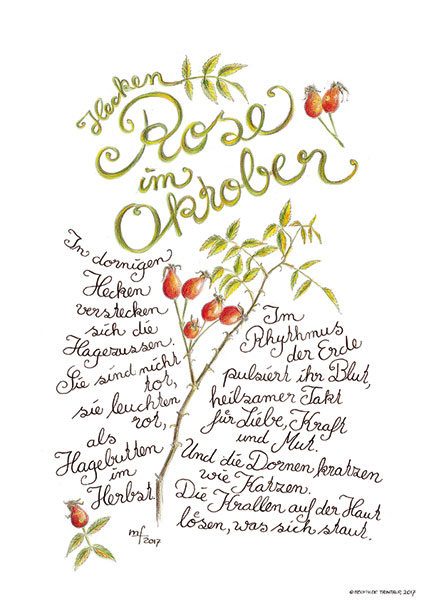 Hecken
Rose
im
Oktober
In dornigen
Hecken
verstecken
sich die
Hagezussen.
Sie sind nicht
tot,
sie leuchten
rot,
als
Hagebutten
im
Herbst.
Im
Rhythmus
der Erde
pulsiert ihr Blut,
heilsamer Takt
für Liebe, Kraft
und Mut.
Und die Dornen kratzen
wie Katzen.
Die Krallen auf der Haut
lösen, was sich staut.
mf
2017
2017